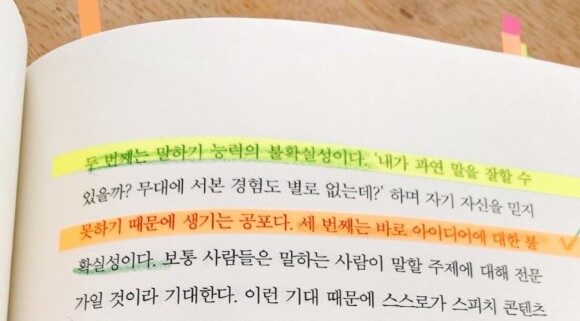 두 번째는 말하기 능력의 불확실성이다. '내가 과연 말을 잘할 수
있을까? 무대에 서본 경험도 별로 없는데?' 하며 자기 자신을 믿지
못하기 때문에 생기는 공포다. 세 번째는 바로 아이디어에 대한 불
확실성이다. 보통 사람들은 말하는 사람이 말할 주제에 대해 전문
가일 것이라 기대한다. 이런 기대 때문에 스스로가 스피치 콘텐츠